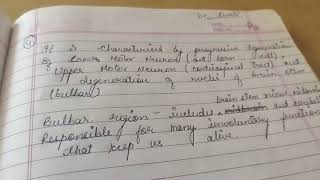 It is characterised by progressive degeneration
of Lower Motor Neuron (ant horn cell),
Upper Motor Neuron (corticospinal tract) and
degeneration of nuclei of brain stem
(bulbar)
brain stem minus midbrain
Bulbar region - includes midbrain and
Responsible for many involuntary functions
that keep us alive.